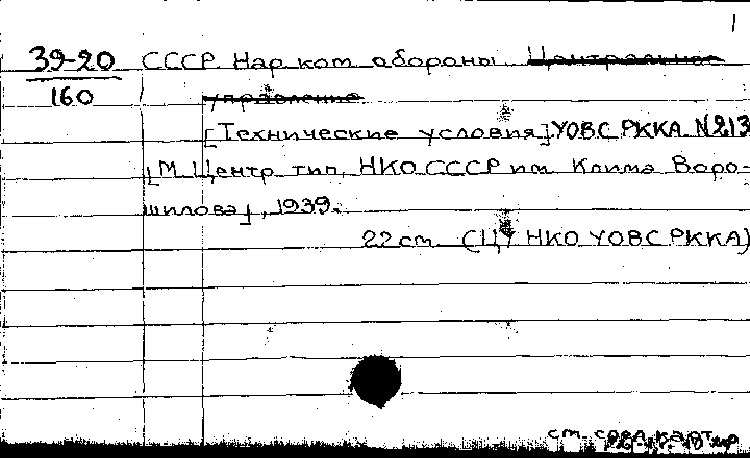 1
39-20 СССР. Нар ком обороны. Центральное
160
управление
[Технические условия] УОВС РККА N213
[М. Центр. тип. НКО СССР им Клима Воро-
шилова], 1939.
22 см (ЦУ НКО УОВС РККА)
см. след. карт.